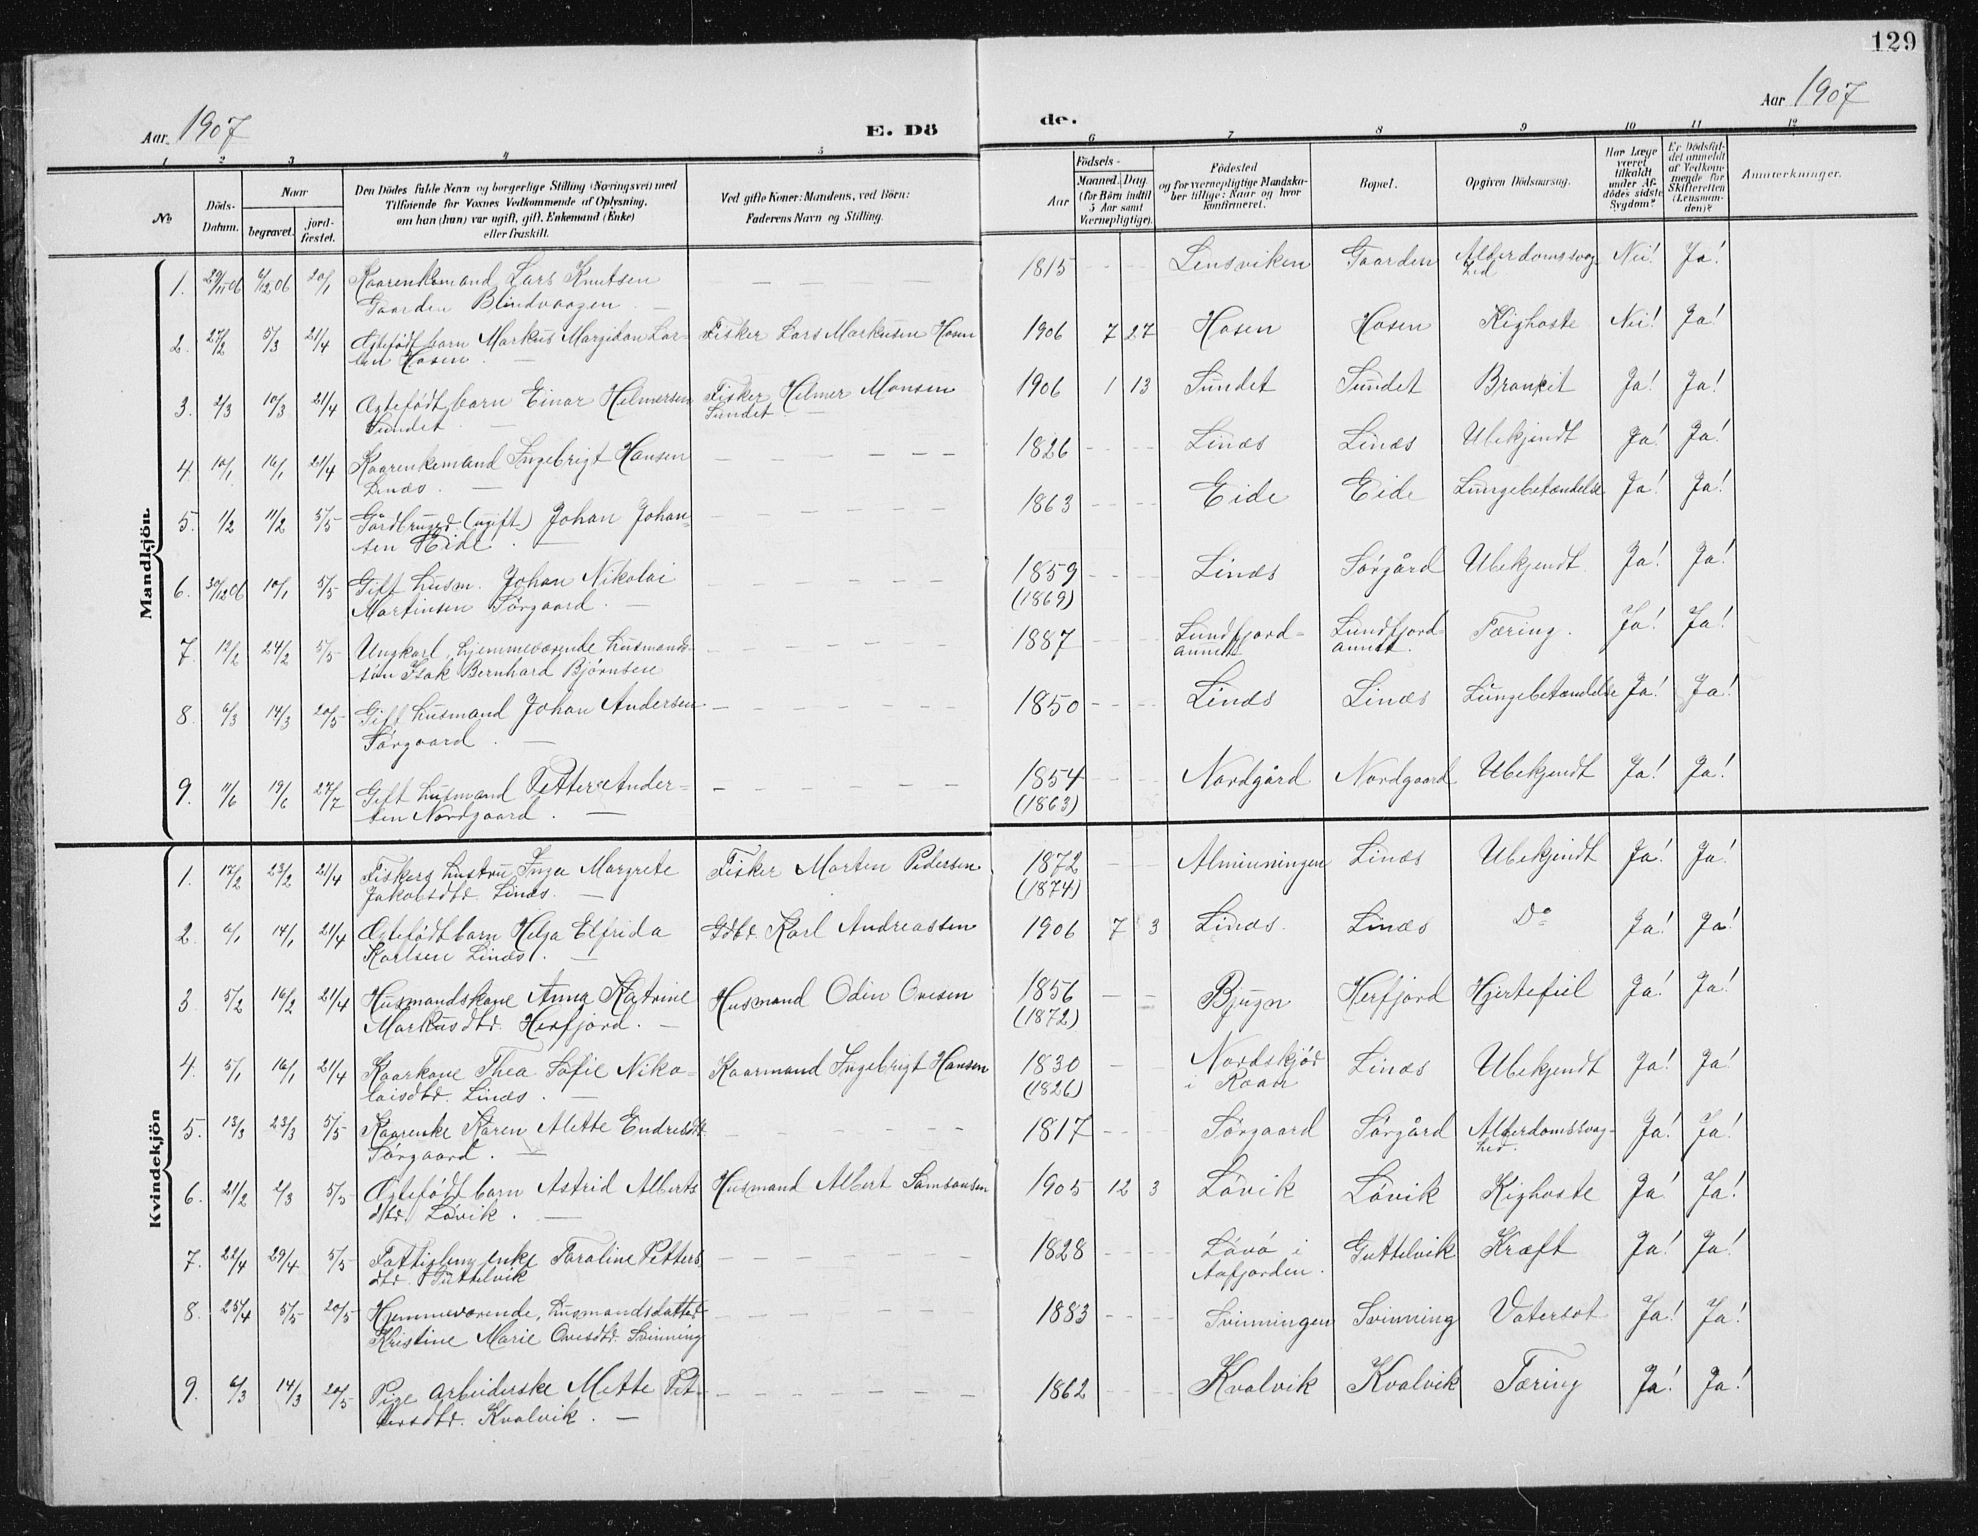 129
Aar 1907
E. Dö
de.
Aar 1907
1 2 3 4 5 6 7 8 9 10 11 12
No
Döds-Datum.
Naar
begravet.
jord-fæstet.
Den Dödes fulde Navn og borgerlige Stilling (Næringsvei) med
Tilføiende for Voxnes Vedkommende af Oplysning,
om han (hun) var ugift, gift, Enkemand (Enke)
eller fraskilt.
Ved gifte Koner: Mandens, ved Börn:
Faderens Navn og Stilling.
Födsels-
Aar
Maaned. Dag
(for Börn indtil
5 Aar samt
Værnepligtige).
Födested
og for værnepligtige Mandska-
ber tillige: Naar og hvor
konfirmeret.
Bopæl.
Opgiven Dödsaarsag.
Har Læge
været
tilkaldt
under Af-
dödes sidste
Sygdom?
Er Dödsfal-
det anmeldt
af Vedkom-
mende for
Skifteretten
(Lensman-
den)?
Anmærkninger.
Mandkjön.
1. 29/11 06 6/12 06 20/1 Kaarenkemand Lars Knutsen — — — — 1815 - - - Lensviken Gaarden Alderdomssvag Nei! Ja!
Gaarden Blindvaagen — hed
2. 27/2 5/3 21/4 Ægtefødt barn Markus Marsidon Lar- Fisker Lars Markusen Hosen 1906 7 27 Hosen Hosen Kighoste Nei! Ja!
sen Hosen. —
3. 2/3 10/3 21/4 Ægtefødt barn Einar Helmersen Fisker Helmer Monsen 1906 1 13 Sundet Sundet Bronkit Ja! Ja!
Sundet — Sundet. —
4. 10/1 16/1 21/4 Kaarenkemand Ingebrigt Hansen — — — — 1826 - - - Linæs Linæs Ubekjendt Ja! Ja!
Linæs. —
5. 1/2 11/2 5/5 Gårdbruger (ugift) Johan Johan- — — — — 1863 - - - Eide Eide Lungebetændelse Ja! Ja!
sen Eide. —
6. 30/12 06 10/1 5/5 Gift husm. Johan Nikolai — — — — 1859 - - - Linæs Sørgård Ubekjendt Ja! Ja!
Martinsen Sørgaard. — (1869)
7. 12/2 24/2 5/5 Ungkarl, hjemmeværende husmands- — — — — 1887 - - - Lundfjord- Lundfjord- Tæring. Ja! Ja!
søn Isak Bernhard Bjørnsen annett annett.
8. 6/3 14/3 20/5 Gift husmand Johan Andersen — — — — 1850 - - - Linæs Linæs Lungebetændelse Ja! Ja!
Sørgaard. —
9. 11/6 19/6 27/7 Gift husmand Petter Ander- — — — — 1854 - - - Nordgård Nordgaard Ubekjendt Ja! Ja!
sen Nordgaard. — (1863)
Kvindekjön
1. 12/2 23/2 21/4 Fiskers hustru Inga Margrete Fisker Morten Pedersen 1872 - - Alminningen Linæs Ubekjendt Ja! Ja!
Jakobsdtr. Linæs. — (1874)
2. 6/1 14/1 21/4 Ægtefødt barn Helga Elfrida Gdbr. Karl Andreassen 1906 7 3 Linæs. Linæs Do Ja! Ja!
Karlsen Linæs. —
3 5/2 16/2 21/4 Husmandskone Anna Katrine Husmand Odin Ovesen 1856 — = Bjugn Herfjord Hjertefeil Ja! Ja!
Markusdtr. Herfjord. — (1872)
4. 5/1 16/1 21/4 Kaarkone Thea Sofie Niko- Kaarmand Ingebrigt Hansen 1830 - - Nordskjør Linæs Ubekjendt Ja! Ja!
laisdtr. Linæs. — (1826) i Roan
5. 13/3 23/3 5/5 Kaarenke Karen Alette Endresdtr — — — — 1817 - - - Sørgaard Sørgård Alderdomssvag- Ja! Ja!
Sørgaard. — hed.
6. 21/2 2/3 5/5 Ægtefødt barn Astrid Alberts Husmand Albert Samsonsen 1905 12 3 Løvik Løvik Kighoste Ja! Ja!
dtr. Løvik. —
7. 22/4 29/4 5/5 Fattiglem, enke Paroline Petters — — — — 1828 - - - Løvø i Guttelvik Kræft Ja! Ja!
dtr. Guttelvik Aafjorden.
8. 25/4 5/5 20/5 Hjemmeværende, husmandsdatter — — — — 1883 - - - Svinningen Svinning Vatersot Ja! Ja!
Kristine Marie Ovesdtr. Svinning
9. 6/3 14/3 20/5 Pige arbeiderske Mette Pet- — — — — 1862 - - Kvalvik Kvalvik Tæring Ja! Ja!
tersdtr. Kvalvik. —